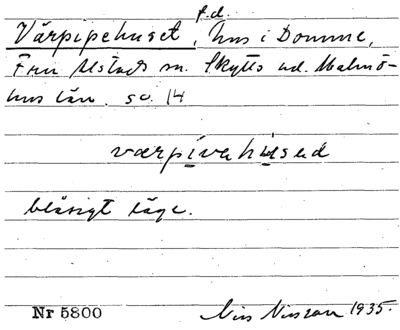 Vårpipehuset, f.d. hus i Domme,
Fru Alstads sn. Skytts hd. Malmö-
hus län. sv. 14
værpivahused
blåsigt läge.
Nr 5800 Nils Nilsson 1935.